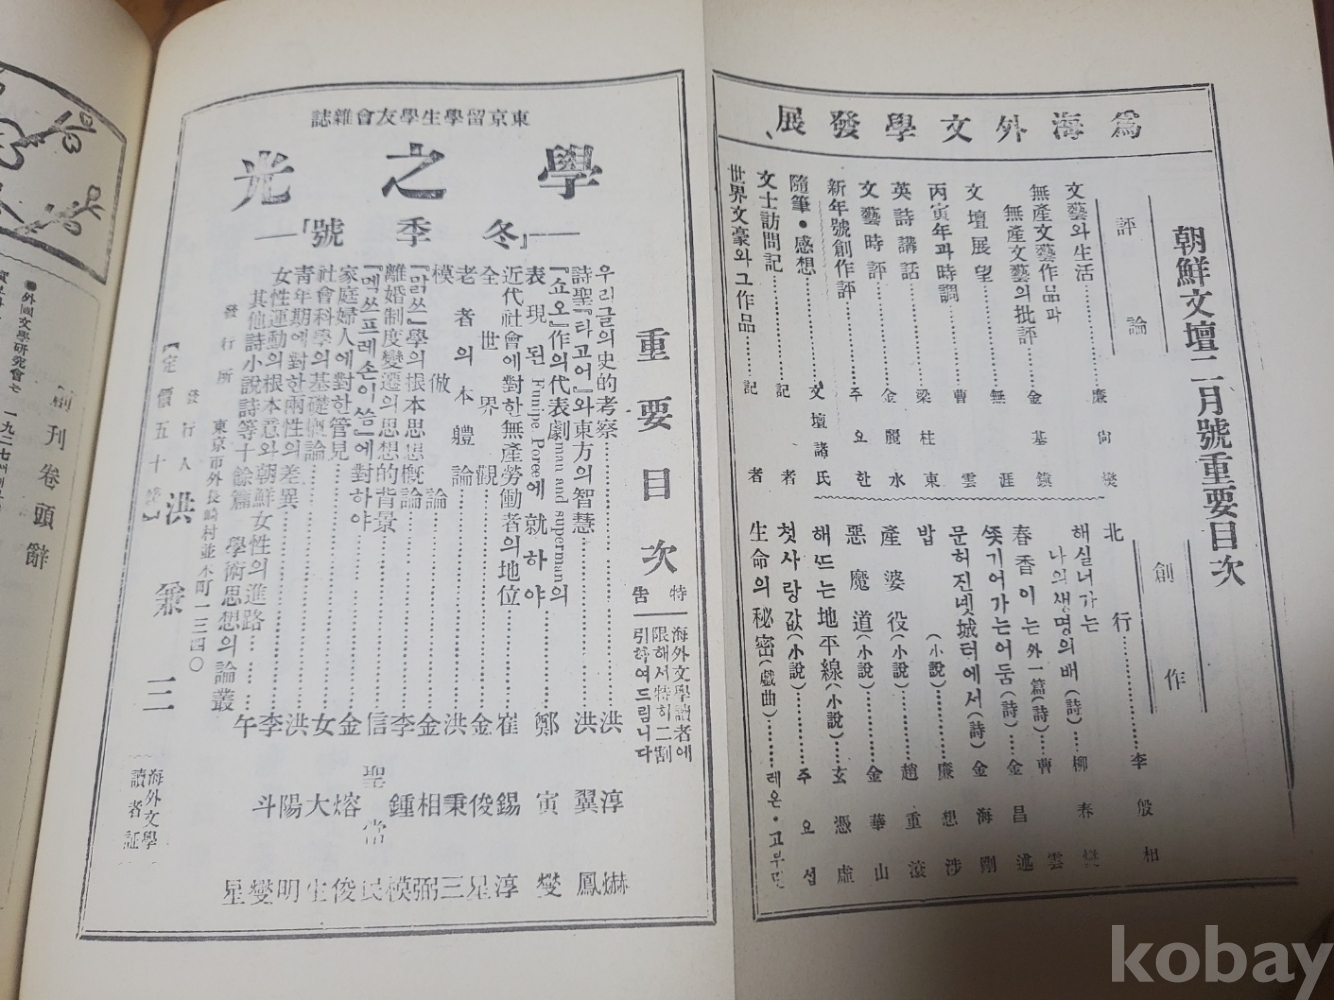 爲海外文學發展、
朝鮮文壇二月號重要目次
評論
文藝와生活……廉尙燮
無產文藝作品과
無產文藝의批評……金基鎭
文壇展望……無涯
丙寅年과時調……曹雲
英詩講話……梁柱東
文藝時評……金麗水
新年號創作評……주요한
隨筆・感想……文壇諸氏
文士訪問記……記者
世界文豪와그作品……記者
創作
北行……李殷相
해실너가는……柳春燮
나의생명의배(詩)
春香이는外一篇(詩)…曹雲
쏫기어가는어둠(詩)…金昌述
문허진녯城터에서(詩)金海剛
밥(小說)……廉想涉
產婆役(小說)……趙重滾
惡魔道(小說)……金華山
해뜨는地平線(小說)…玄憑虛
첫사랑값(小說)……주요섭
生命의秘密(戱曲)……레온・고부민
東京留學生學友會雜誌
學之光
―「冬季號」―
重要目次
우리글의史的考察……洪淳赫
詩聖『타고어』와東方의智慧……洪翼鳳
『쇼오』作의代表劇man and superman의
表現된Funipe, Poree에就하야……鄭寅燮
近代社會에對한無產勞働者의地位……崔錫淳
全世界觀……金俊星
老者의本軆論……洪秉三
模倣論……金相弼
『맑쓰』學의根本思想槪論……李鍾模
離婚制度變遷의思想的背景……信聖當民
『멕쓰프레손이쯤』에對하야……金熔俊
家庭婦人에對한管見……女大生
社會科學의基礎槪論……洪陽明
靑年期에對한兩性의差異……李斗燮
女性運動의根本意와朝鮮女性의進路……午星
其他詩小說詩等十餘篇 學術思想의論叢
發行所 東京市外長崎村並木町一三四〇
發行人 洪兼三
【定價五十錢】
特告
海外文學讀者에
限해서特히二割
引하여드림니다
海外文學
讀者証
●外國文學硏究會는
一九二七
創刊卷頭辭
kobay